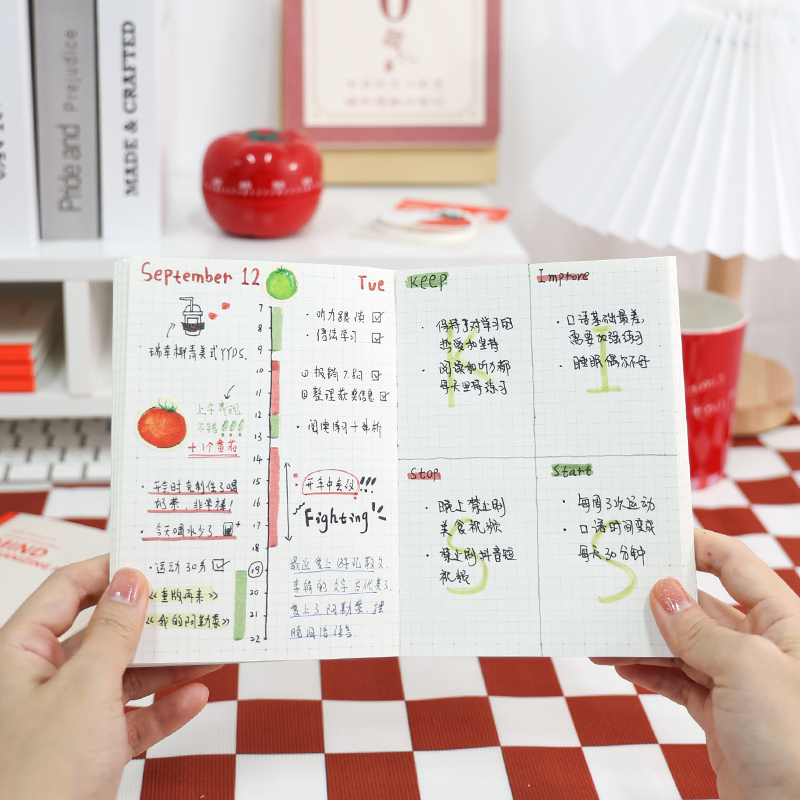 Pride and Prejudice
MADE & CRAFTED
September 12
Tue
瑞幸柳青美式YYDS.
上午表现
不错
+1个番茄
开会时克制住了喝
奶茶,非常棒!
今天喝水少了
运动30分
《重版再来》
《我的阿勒泰》
7
8
9
10
11
12
13
14
15
16
17
18
19
20
21
22
听力跟读
倍法学习
① 报销7.8月
② 整理获奖信息
阅读练习+解析
开年中会议!!!
Fighting
最近爱上游记散文.
李娟的文字太优美了
爱上了阿勒泰.摆
脱网络语言.
Keep
保持了对学习的
热爱和坚持
阅读和听力都
每天坚持练习
K
Improve
口语基础最差,
需要加强练习
睡眠偶尔不好
I
Stop
晚上禁止刷
美食视频
禁止刷抖音短
视频
S
Start
每周3次运动
口语时间变成
每天30分钟
S